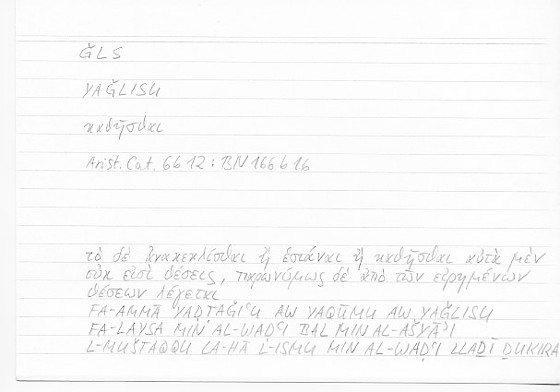 ǦLS
YAǦLISU
καθῆσθαι
Arist. Cat. 6b12 : BN 166b16
τὸ δὲ ἀνακεκλίσθαι ἢ ἑστάναι ἢ καθῆσθαι αὐτὰ μὲν
οὐκ εἰσὶ θέσεις, παρωνύμως δὲ ἀπὸ τῶν εἰρημένων
θέσεων λέγεται
FA-AMMĀ YAḌṬAǦIʿU AW YAQŪMU AW YAǦLISU
FA-LAYSA MIN AL-WAḌʿI BAL MIN AL-AŠYĀʾI
L-MUŠTAQQU LA-HĀ L-ISMU MIN AL-WAḌʿI LLAḎĪ ḎUKIRA